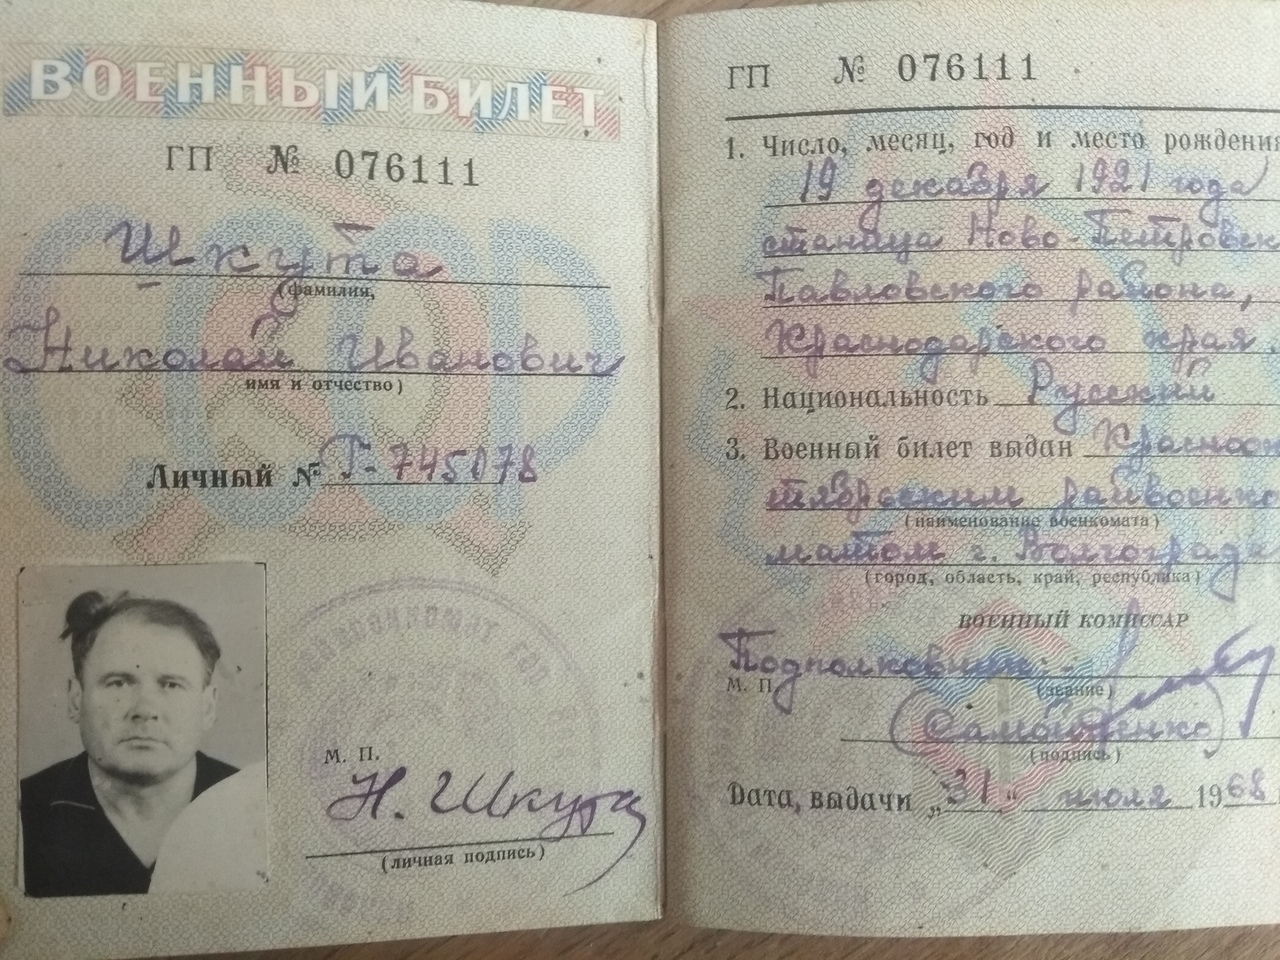 ВОЕННЫЙ БИЛЕТ
ГП № 076111
Шкута
(фамилия,
Николай Иванович
имя и отчество)
Личный № Г-745078
М. П.
Н. Шкута
(личная подпись)
ГП № 076111
1. Число, месяц, год и место рождения
19 декабря 1921 года
станица Ново-Петровск
Павловского района,
Краснодарского края.
2. Национальность Русский
3. Военный билет выдан Красноок
тябрьским райвоенко
(наименование военкомата)
матом г. Волгограда
(город, область, край, республика)
ВОЕННЫЙ КОМИССАР
Подполковник:-
М. П. (звание)
(подпись)
Дата, выдачи „31“ июля 1968